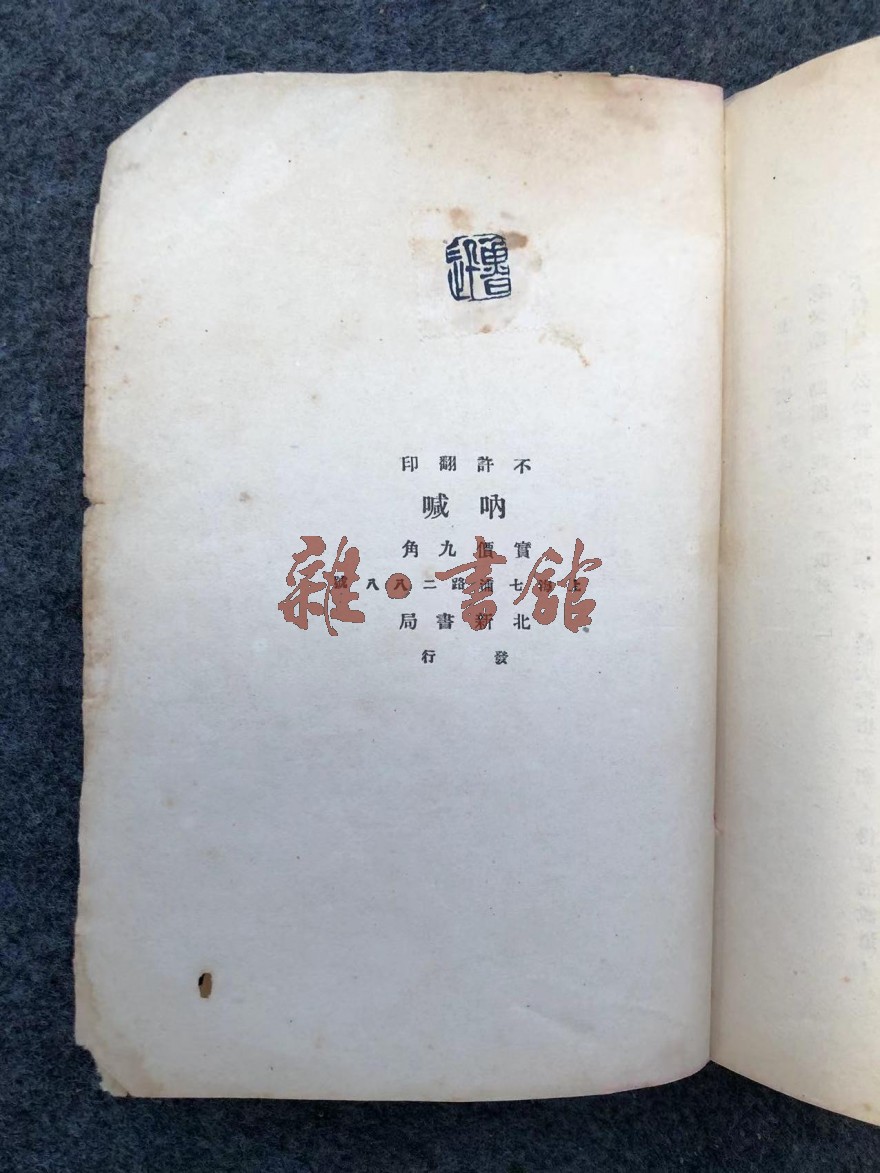 魯迅
不許翻印
吶喊
實價九角
上海七浦路二八八號
北新書局
發行
雜·書館